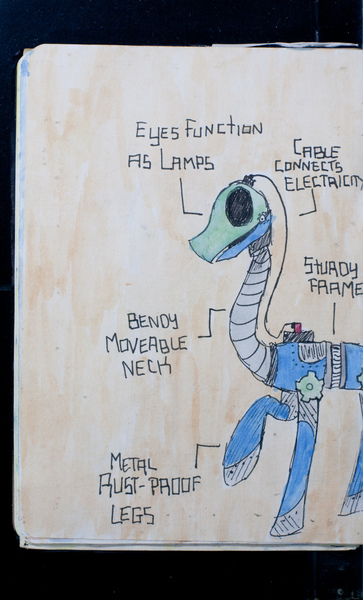 EYES FUNCTION
AS LAMPS
CABLE
CONNECTS
ELECTRICITY
STURDY
FRAME
BENDY
MOVEABLE
NECK
METAL
RUST-PROOF
LEGS